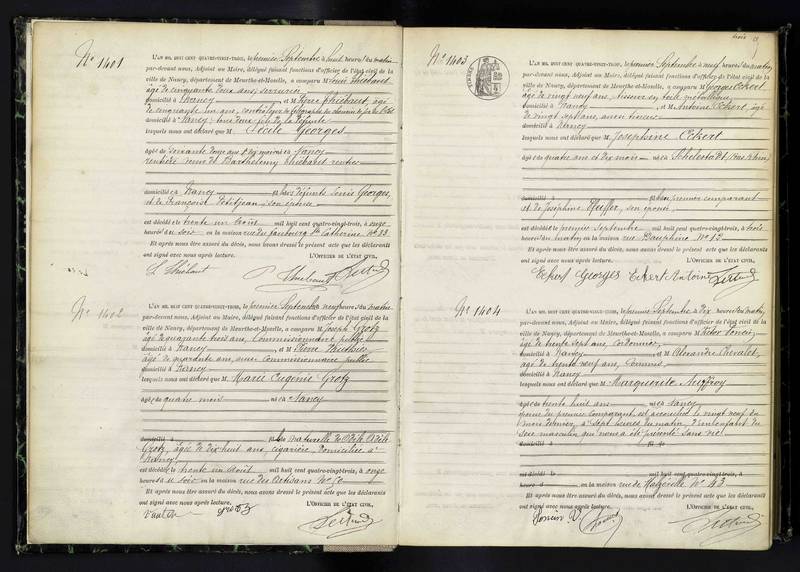 No 1401
L'AN MIL HUIT CENT QUATRE-VINGT-TROIS, le premier Septembre à huit heures du matin
par-devant nous, Adjoint au Maire, délégué faisant fonctions d'officier de l'état civil de la
ville de Nancy, département de Meurthe-et-Moselle, a comparu M Louis Thiébaut
âgé de cinquante deux ans, serrurier
domicilié à Nancy et M
domicilié à Nancy
lesquels nous ont déclaré que M Cécile Georges
âgée de soixante ans née à Nancy
rentière veuve de Barthélemy Thiébaut rentier
domiciliée à Nancy fille de défunts Louis Georges,
et de Françoise Petitjean, son épouse
est décédée le trente un Août mil huit cent quatre-vingt-trois, à onze
heures du soir en la maison rue du faubourg Ste Catherine No 33
Et après nous être assuré du décès, nous avons dressé le présent acte que les déclarants
ont signé avec nous après lecture. L'OFFICIER DE L'ÉTAT CIVIL,
No 1402
L'AN MIL HUIT CENT QUATRE-VINGT-TROIS, le premier Septembre neuf heures du matin
par-devant nous, Adjoint au Maire, délégué faisant fonctions d'officier de l'état civil de la
ville de Nancy, département de Meurthe-et-Moselle, a comparu M Joseph Grotz
âgé de quarante trois ans, Commissionnaire public
domicilié à Nancy et M Pierre
âgé de quarante ans, aussi Commissionnaire public
domicilié à Nancy
lesquels nous ont déclaré que M Marie Eugénie Grotz
âgée de quatre mois née à Nancy
domicilié à fille naturelle de
Grotz, âgée de dix huit ans, cigarière, domiciliée à
Nancy
est décédée le trente un Août mil huit cent quatre-vingt-trois, à onze
heures du soir en la maison rue des Artisans No 50
Et après nous être assuré du décès, nous avons dressé le présent acte que les déclarants
ont signé avec nous après lecture. L'OFFICIER DE L'ÉTAT CIVIL,
9
No 1403
L'AN MIL HUIT CENT QUATRE-VINGT-TROIS, le premier Septembre à neuf heures du matin
par-devant nous, Adjoint au Maire, délégué faisant fonctions d'officier de l'état civil de la
ville de Nancy, département de Meurthe-et-Moselle, a comparu M Georges Eckert
âgé de vingt neuf ans, tisseur en toile métallique
domicilié à Nancy et M Antoine Eckert, âgé
de vingt sept ans, aussi tisseur
domicilié à Nancy
lesquels nous ont déclaré que M Joséphine Eckert
âgée de quatre ans et dix mois née à Schelestadt (Bas Rhin)
domicilié à fille du premier comparant
et de Joséphine son épouse
est décédée le premier Septembre mil huit cent quatre-vingt-trois, à trois
heures du matin en la maison rue Dauphine No 13
Et après nous être assuré du décès, nous avons dressé le présent acte que les déclarants
ont signé avec nous après lecture. L'OFFICIER DE L'ÉTAT CIVIL,
Eckert Georges Eckert Antoine
No 1404
L'AN MIL HUIT CENT QUATRE-VINGT-TROIS, le premier Septembre à dix heures du matin,
par-devant nous, Adjoint au Maire, délégué faisant fonctions d'officier de l'état civil de la
ville de Nancy, département de Meurthe-et-Moselle, a comparu M Victor
âgé de trente sept ans, Cordonnier
domicilié à Nancy et M Alexandre Chevalet,
âgé de trente neuf ans, Commis
domicilié à Nancy
lesquels nous ont déclaré que M Marguerite
âgée de trente huit ans née à Nancy
épouse du premier comparant est accouchée le vingt neuf du
mois dernier, à sept heures du matin, d'un enfant du
sexe masculin qui nous a été présenté sans vie
domicilié à
est décédé le mil huit cent quatre-vingt-trois, à
heures d en la maison rue de No 43
Et après nous être assuré du décès, nous avons dressé le présent acte que les déclarants
ont signé avec nous après lecture. L'OFFICIER DE L'ÉTAT CIVIL,